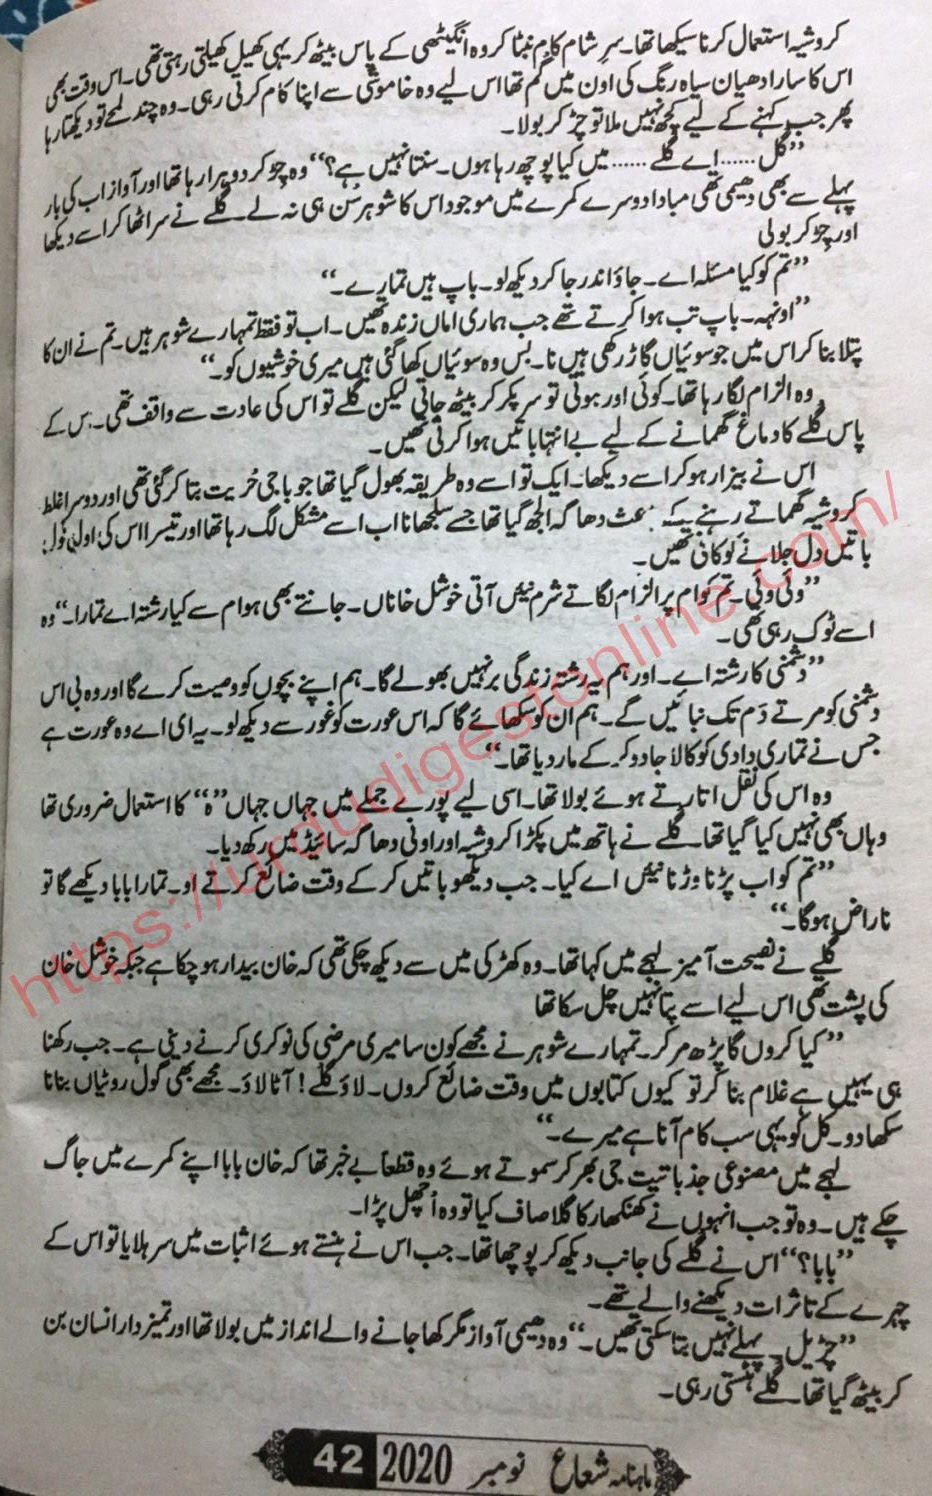 کروشیہ استعمال کرنا سیکھا تھا۔ سرِ شام کام نبٹا کر وہ انگیٹھی کے پاس بیٹھ کر یہی کھیل کھیلتی رہتی تھی۔ اس وقت بھی
اس کا سارا دھیان سیاہ رنگ کی اون میں گم تھا اس لیے وہ خاموشی سے اپنا کام کرتی رہی۔ وہ چند لمحے تو دیکھتا رہا
پھر جب کہنے کے لیے کچھ نہیں ملا تو چڑ کر بولا۔
”گل...... اے گلے...... میں کیا پوچھ رہا ہوں۔ سنتا نہیں ہے؟“ وہ چڑ کر دوہرا رہا تھا اور آواز اب کی بار
پہلے سے بھی دھیمی تھی مبادا دوسرے کمرے میں موجود اس کا شوہر سن ہی نہ لے۔ گلے نے سر اٹھا کر اسے دیکھا
اور چڑ کر بولی
”تم کو کیا مسئلہ اے۔ جاؤ اندر جا کر دیکھ لو۔ باپ ہیں تمارے۔“
”اونہہ۔ باپ تب ہوا کرتے تھے جب ہماری اماں زندہ تھیں۔ اب تو فقط تمہارے شوہر ہیں۔ تم نے ان کا
پتلا بنا کر اس میں جو سوئیاں گاڑ رکھی ہیں نا۔ بس وہ سوئیاں کھا گئی ہیں میری خوشیوں کو۔“
وہ الزام لگا رہا تھا۔ کوئی اور ہوتی تو سر پکڑ کر بیٹھ جاتی لیکن گلے تو اس کی عادت سے واقف تھی۔ جس کے
پاس گلے کا دماغ گھمانے کے لیے بے انتہا باتیں ہوا کرتی تھیں۔
اس نے بیزار ہو کر اسے دیکھا۔ ایک تو اسے وہ طریقہ بھول گیا تھا جو باجی حُریت بتا کر گئی تھی اور دوسرا غلط
کروشیہ گھماتے رہنے کے باعث دھاگہ الجھ گیا تھا جسے سلجھانا اب اسے مشکل لگ رہا تھا اور تیسرا اس کی اول فول
باتیں دل جلانے کو کافی تھیں۔
”وئی وئی۔ تم کو ام پر الزام لگاتے شرم نئیں آتی خوشل خاناں۔ جانتے بھی ہو ام سے کیا رشتہ اے تمارا۔“ وہ
اسے ٹوک رہی تھی۔
”دشمنی کا رشتہ اے۔ اور ہم یہ رشتہ زندگی بر نہیں بھولے گا۔ ہم اپنے بچوں کو وصیت کرے گا اور وہ بی اس
دشمنی کو مرتے دَم تک نبائیں گے۔ ہم ان کو سکھائے گا کہ اس عورت کو غور سے دیکھ لو۔ یہ ای اے وہ عورت ہے
جس نے تماری دادی کو کالا جادو کر کے مار دیا تھا۔“
وہ اس کی نقل اتارتے ہوئے بولا تھا۔ اسی لیے پورے جملے میں جہاں جہاں ”ہ“ کا استعمال ضروری تھا
وہاں بھی نہیں کیا گیا تھا۔ گلے نے ہاتھ میں پکڑا کروشیہ اور اونی دھاگہ سائیڈ میں رکھ دیا۔
”تم کو اب پڑنا وڑنا نئیں اے کیا۔ جب دیکھو باتیں کر کے وقت ضائع کرتے او۔ تمارا بابا دیکھے گا تو
ناراض ہوگا۔“
گلے نے نصیحت آمیز لہجے میں کہا تھا۔ وہ کھڑکی میں سے دیکھ چکی تھی کہ خان بیدار ہو چکا ہے جبکہ خوشل خان
کی پشت تھی اس لیے اسے پتا نہیں چل سکا تھا
”کیا کروں گا پڑھ مر کر۔ تمہارے شوہر نے مجھے کون سا میری مرضی کی نوکری کرنے دینی ہے۔ جب رکھنا
ہی یہیں ہے غلام بنا کر تو کیوں کتابوں میں وقت ضائع کروں۔ لاؤ گلے! آٹا لاؤ۔ مجھے بھی گول روٹیاں بنانا
سکھا دو۔ کل کو یہی سب کام آنا ہے میرے۔“
لہجے میں مصنوعی جذباتیت جی بھر کر سموتے ہوئے وہ قطعاً بے خبر تھا کہ خان بابا اپنے کمرے میں جاگ
چکے ہیں۔ وہ تو جب انہوں نے کھنکھار کر گلا صاف کیا تو وہ اُچھل پڑا۔
”بابا؟“ اس نے گلے کی جانب دیکھ کر پوچھا تھا۔ جب اس نے ہنستے ہوئے اثبات میں سر ہلایا تو اس کے
چہرے کے تاثرات دیکھنے والے تھے۔
”چڑیل۔ پہلے نہیں بتا سکتی تھیں۔“ وہ دھیمی آواز مگر کھا جانے والے انداز میں بولا تھا اور تمیز دار انسان بن
کر بیٹھ گیا تھا۔ گلے ہنستی رہی۔
ماہنامہ شعاع نومبر 2020 42
https://urdudigestonline.com/